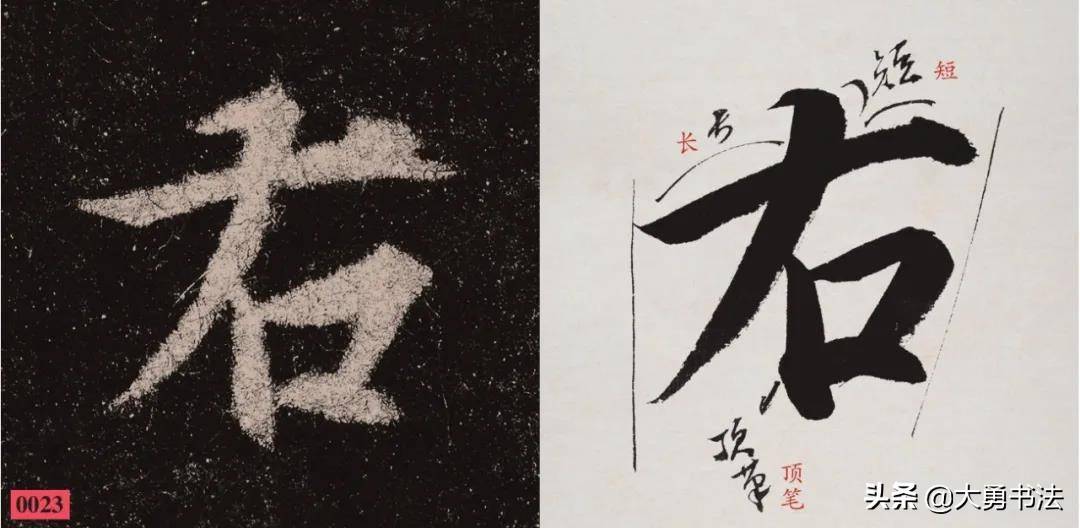 右
0023
短
短
长
长
右
顶笔
顶笔
头条 @大勇书法